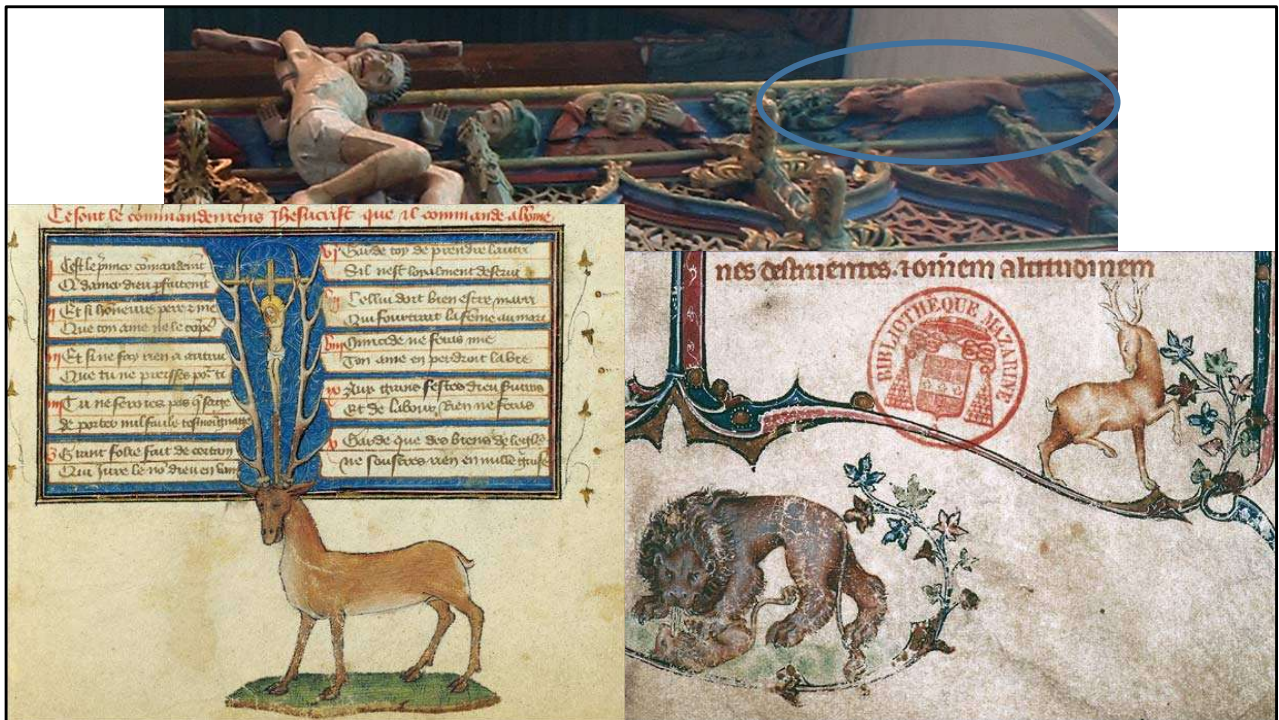 Ce sont le commandemens Jhesucrist que il commande a lome
Cest le p̃mier comandemt
Q damer dieu pfaitemt
Et si honneure pere & me
Que ton ame ne le cope
Et si ne fay rien a autrui
Que tu ne preisses por ti
Tu ne feroies pas q sage
de porter nul faulx tesmoignage
Grant folie fait de certain
Qui jure le no dieu en vain
Garde toy de prendre lautrui
Sil nest loyalment
Cellui doit bien estre marri
Qui fourtrait la feme au mari
homicide ne feras mie
Ton ame en perdroit la vie
Aux grans festes dieu
Et de labour Rien ne feras
Garde que des biens de leglise
ne rien en nulle guise
nes destruentes. & omem altitudinem
BIBLIOTHEQUE MAZARINE